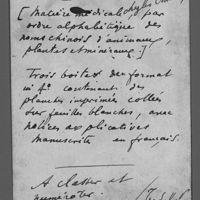 [Matière médicale, par
ordre alphabétique des
noms chinois d'animaux,
plantes et minéraux.]
Trois boîtes du format
in 4° contenant des
planches imprimées collées
sur feuilles blanches, avec
notices explicatives
manuscrites en français.
A classer et
numéroter.